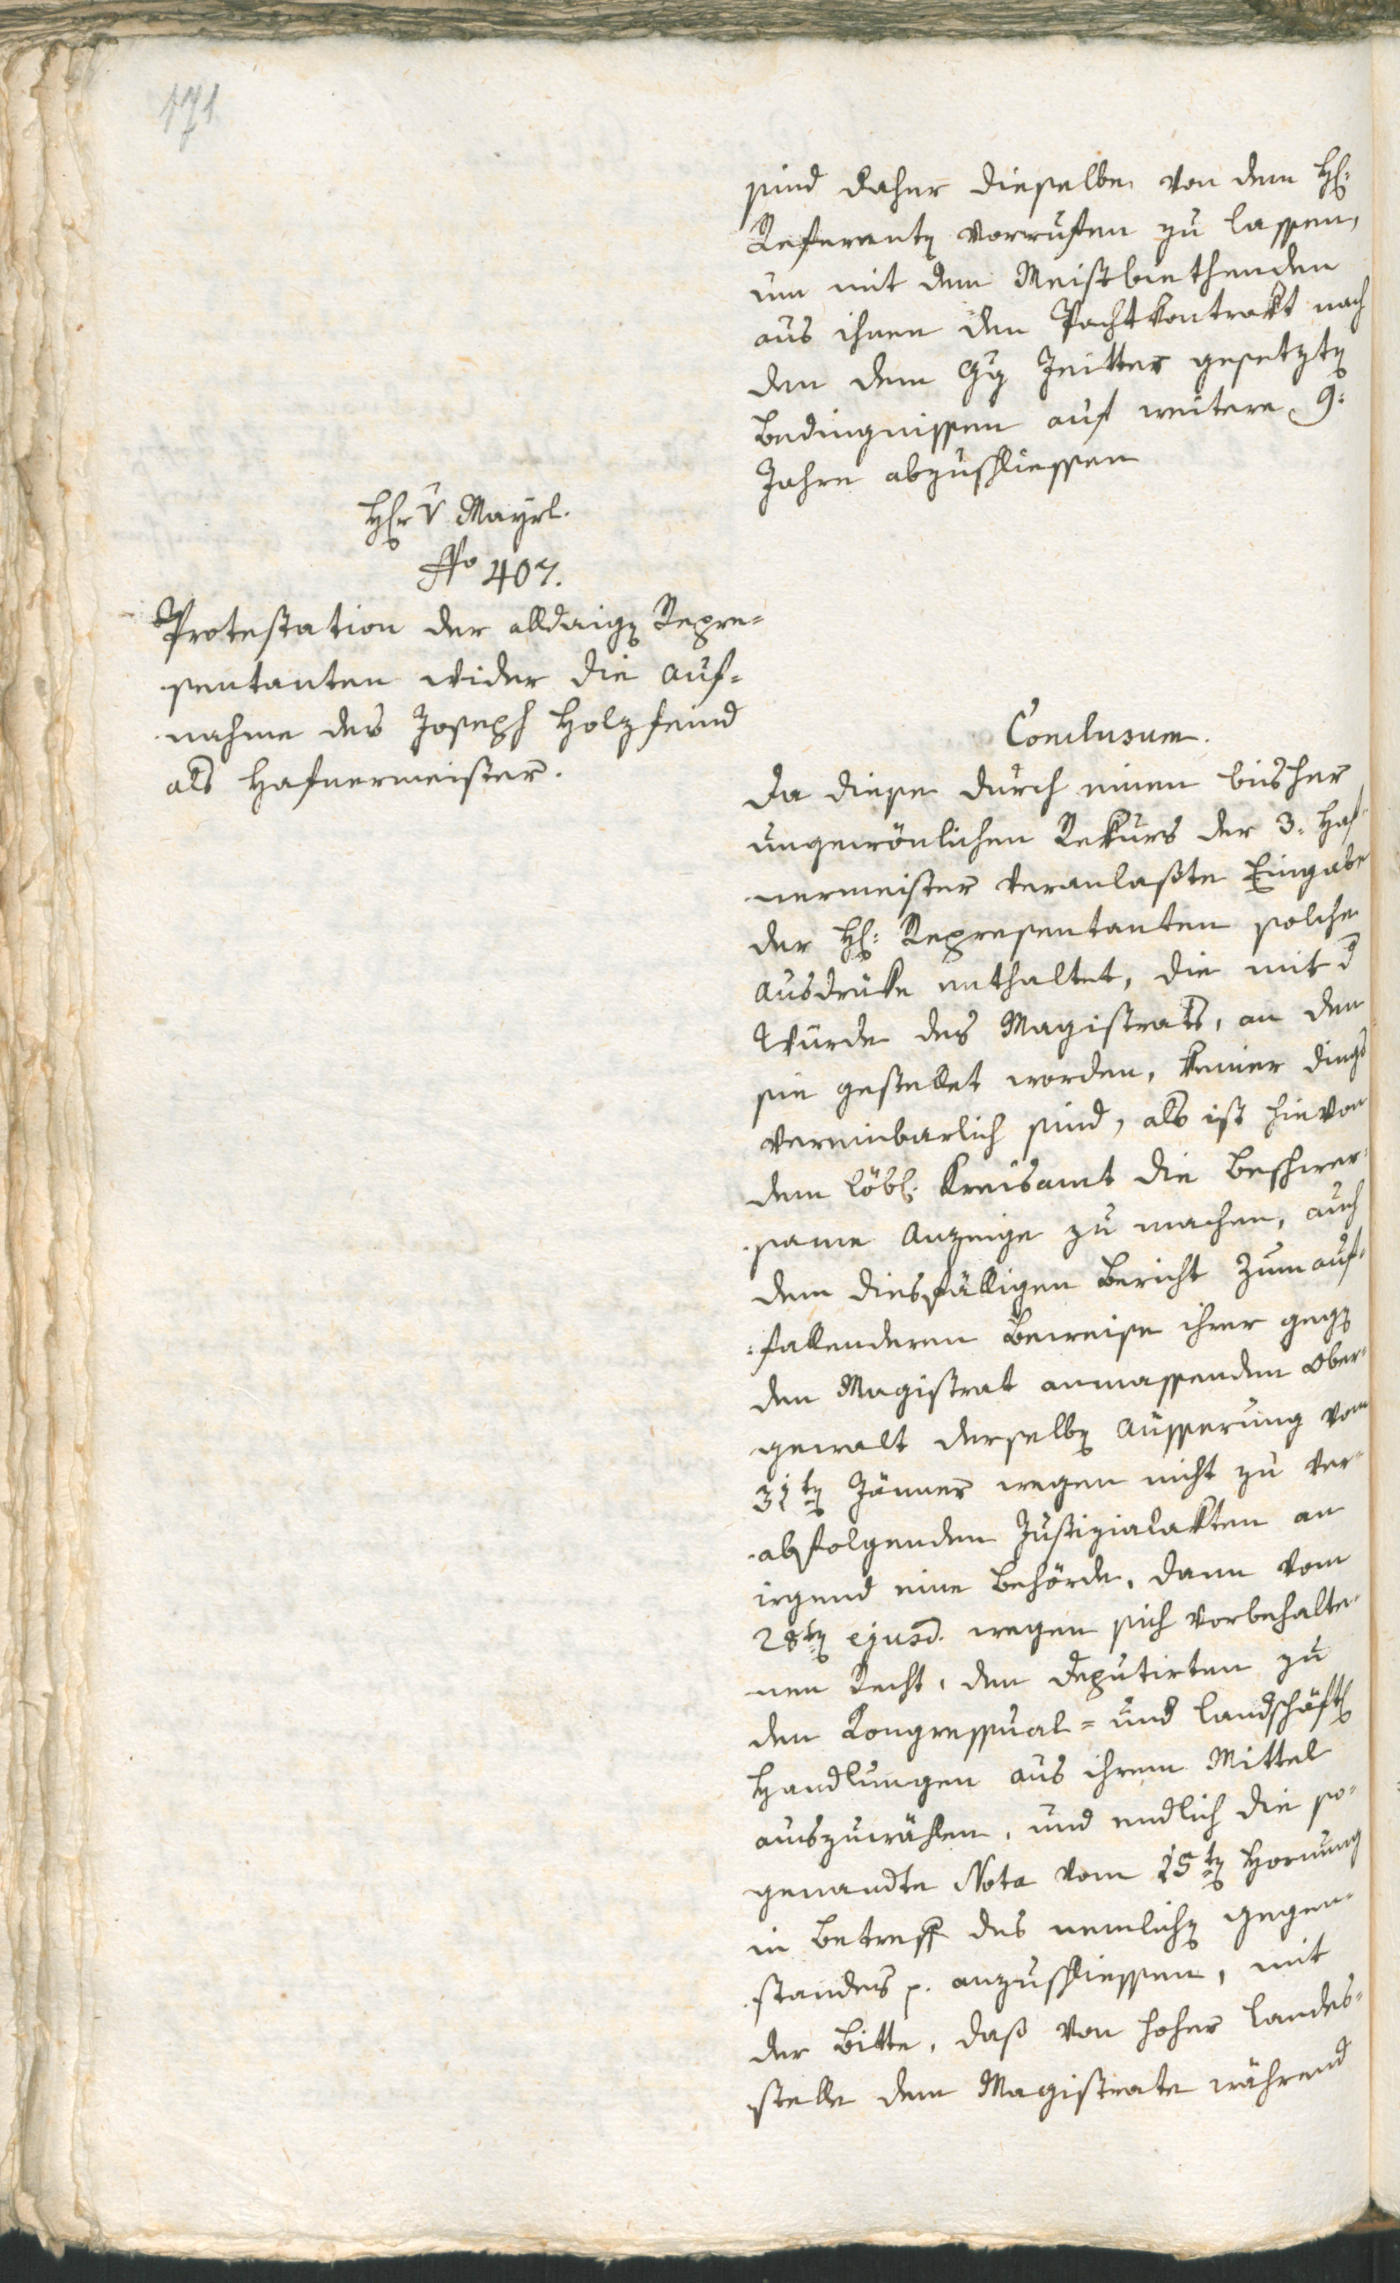 171
sind daher dieselbe von dem H:
Referenten vorrufen zu lassen,
um mit dem Meistbiethenden
aus ihnen den Pachtkontrakt nach
den dem Gg Zeitter gesetzten
Bedingnissen auf weitere 9:
Jahre abzuschliessen
Hr v Mayrl.
No 407.
Protestation der alldaigen Repre=
sentanten wider die Auf=
nahme des Joseph Holzfeind
als Hafnermeister.
Conclusum.
Da diese durch einen bisher
ungewönlichen Rekurs der 3. Haf=
nermeister veranlaßte Eingabe
der H: Representanten solche
Ausdrüke enthaltet, die mit d
Würde des Magistrats, an den
sie gestellet worden, keiner dings
vereinbarlich sind, als ist hievon
dem löbl. Kreisamt die beschwer=
same Anzeige zu machen, auch
dem diesfälligen Bericht zum auf=
fallenderen Beweise ihrer gegen
den Magistrat anmassenden Ober=
gewalt derselben Äusserung vom
31ten Jänner wegen nicht zu ver=
abfolgenden Justizialakten an
irgend eine Behörde, dann vom
28ten ejusd. wegen sich vorbehalte=
nen Recht, den Deputirten zu
den Kongressual= und landschäftl
Handlungen aus ihrem Mittel
auszuwählen, und endlich die so=
genandte Nota vom 15ten Hornung
in Betreff des nemlichen Gegen=
standes p. anzuschliessen, mit
der Bitte, daß von hoher Landes=
stelle dem Magistrate während